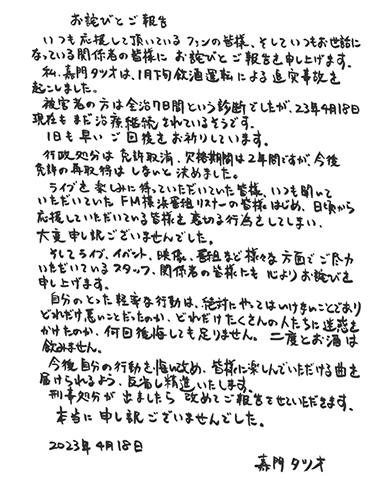 お詫びとご報告
いつも応援して頂いているファンの皆様、そしていつもお世話に
なっている関係者の皆様に お詫びとご報告を申し上げます。
私、嘉門タツオは、1月下旬飲酒運転による追突事故を
起こしました。
被害者の方は全治7日間という診断でしたが、23年4月18日
現在も まだ治療継続されているそうです。
1日も早い ご回復をお祈りしています。
行政処分は 免許取消、欠格期間は2年間ですが、今後
免許の再取得は しないと決めました。
ライブを楽しみに待っていただいていた皆様、いつも聞いて
いただいていたFM横浜番組リスナーの皆様はじめ、日頃から
応援していただいている皆様を 裏切る行為をしてしまい、
大変申し訳ございませんでした。
そしてライブ、イベント、映像、番組など様々な方面で ご尽力
いただいているスタッフ、関係者の皆様にも 心よりお詫びを
申し上げます。
自分のとった軽率な行動は、絶対にやってはいけないことであり
どれだけ悪いことだったのか、どれだけたくさんの人たちに 迷惑を
かけたのか、何回後悔しても足りません。二度とお酒は
飲みません。
今後自分の行動を悔い改め、皆様に楽しんでいただける曲を
届けられるよう、反省し精進いたします。
刑事処分が出ましたら 改めてご報告させていただきます。
本当に申し訳ございませんでした。
2023年4月18日
嘉門タツオ